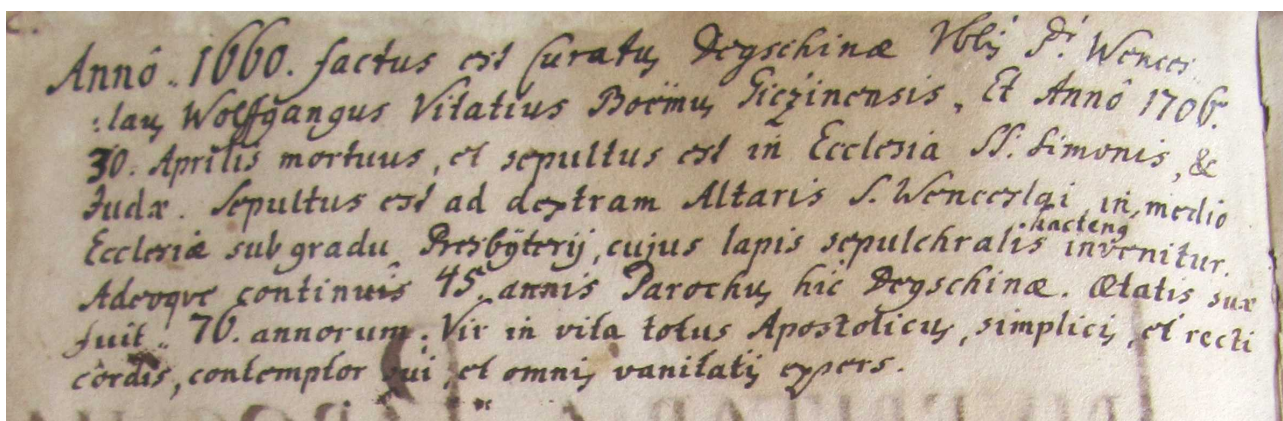 Annô .. 1660. factus est Curatus Degschinæ Wences
:laus Wolffgangus Vitatius Boëmus Giczinensis, Et Annô 1706.
30. Aprilis mortuus, et sepultus est in Ecclesia SS. Simonis, &
Judæ. Sepultus est ad dextram Altaris S. Wenceslai in medio
Ecclesiæ sub gradu Presbÿterij, cujus lapis sepulchralis hactenus invenitur.
Adeoque continuis 45 annis Parochus hic Degschinæ. Ætatis suæ
fuit .. 70. annorum. Vir in vita totus Apostolicus, simplicis, et recti
cordis, contemptor sui, et omnis vanitatis expers.